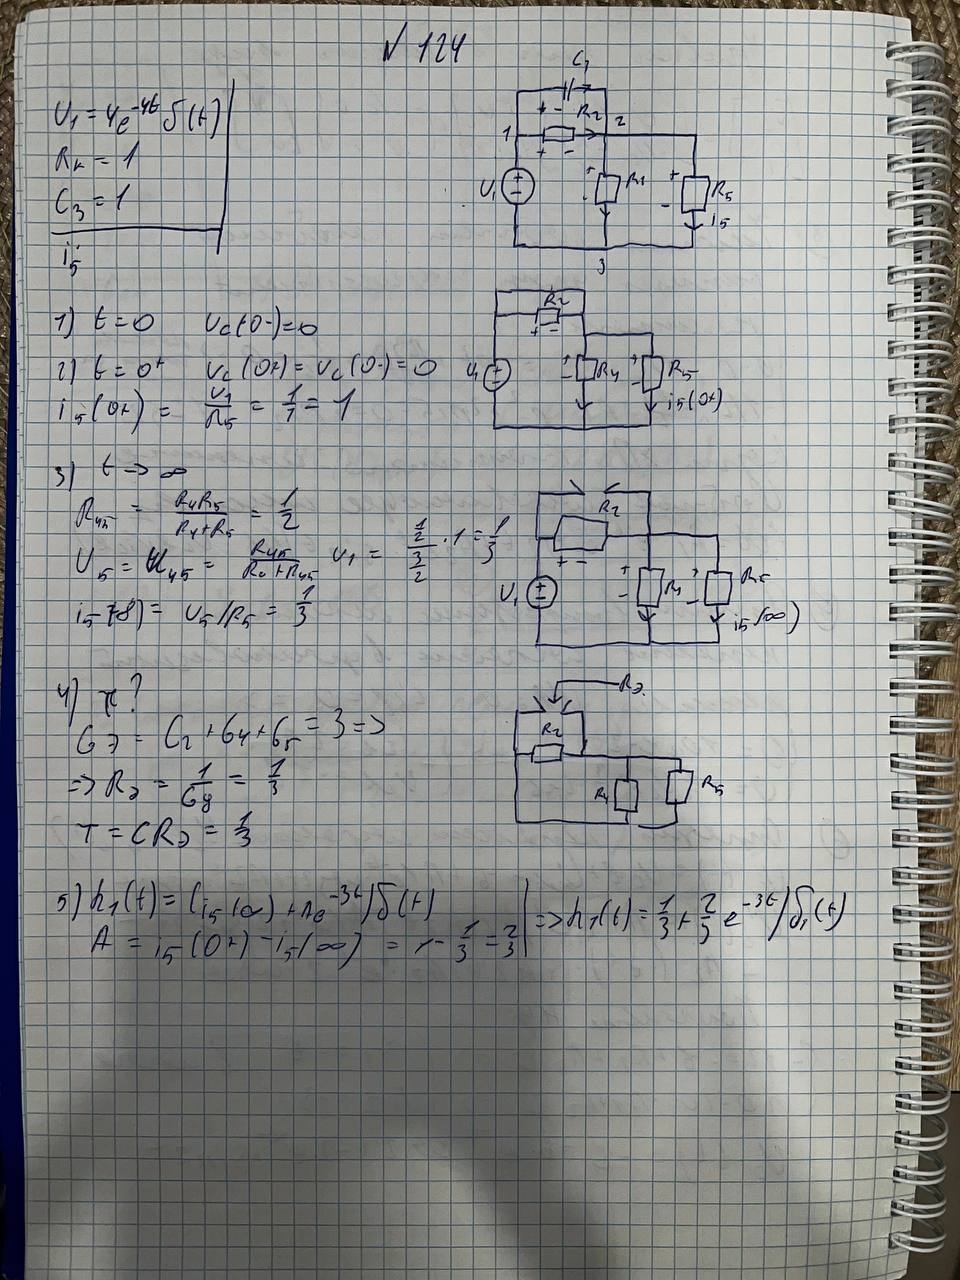 N 124
U₁ = 4e⁻⁴ᵗ δ(t)
Rк = 1
C₃ = 1
i₅
C₃
+ -
R₂
1
2
+ -
U₁
+
R₄
+
-
R₅
i₅
3
1) t = 0 Uc(0-) = 0
2) t = 0⁺ Uc(0+) = Uc(0-) = 0
i₅(0+) = U₁/R₅ = 1/1 = 1
R₂
+ -
U₁
+
-
R₄
+
-
R₅
i₅(0+)
3) t → ∞
R₄₅ = R₄R₅/(R₄+R₅) = 1/2
U₅ = U₄₅ = R₄₅/(R₂+R₄₅) U₁ = (1/2)/(3/2) · 1 = 1/3
i₅(∞) = U₅/R₅ = 1/3
R₂
+ -
U₁
+
-
R₄
+
-
R₅
i₅(∞)
4) τ?
Gэ = G₂ + G₄ + G₅ = 3 =>
=> Rэ = 1/Gэ = 1/3
T = CRэ = 1/3
Rэ
R₂
R₄
R₅
5) h₁(t) = (i₅(∞) + Ae⁻³ᵗ) δ(t) => h₁(t) = 1/3 + 2/3 e⁻³ᵗ) δ₁(t)
A = i₅(0+) - i₅(∞) = 1 - 1/3 = 2/3